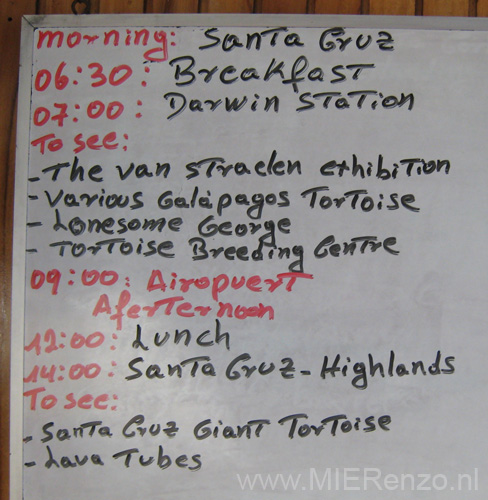 morning: Santa Cruz
06:30: Breakfast
07:00: Darwin Station
To see:
- The van straelen exhibition
- Various Galápagos Tortoise
- Lonesome George
- Tortoise Breeding Centre
09:00: Airopuert
Aferternoon
12:00: Lunch
14:00: Santa Cruz - Highlands
To see:
- Santa Cruz Giant Tortoise
- Lava Tubes
www.MIERenzo.nl